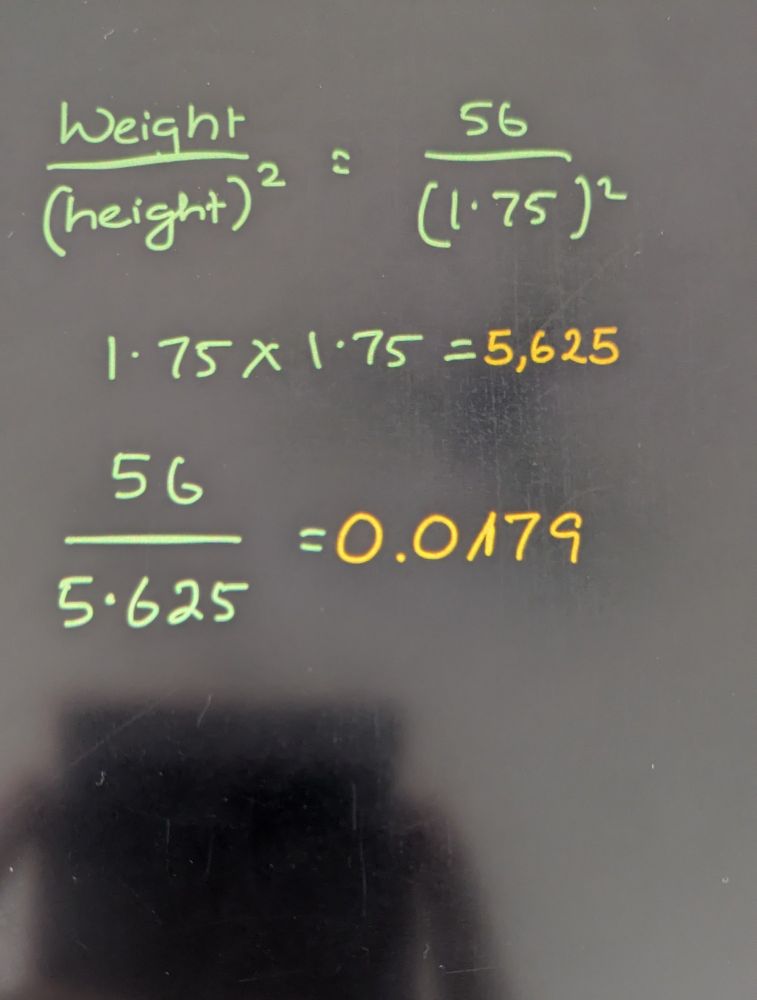 Weight/(height)² = 56/(1.75)²
1.75 x 1.75 = 5,625
56/5.625 = 0.0179